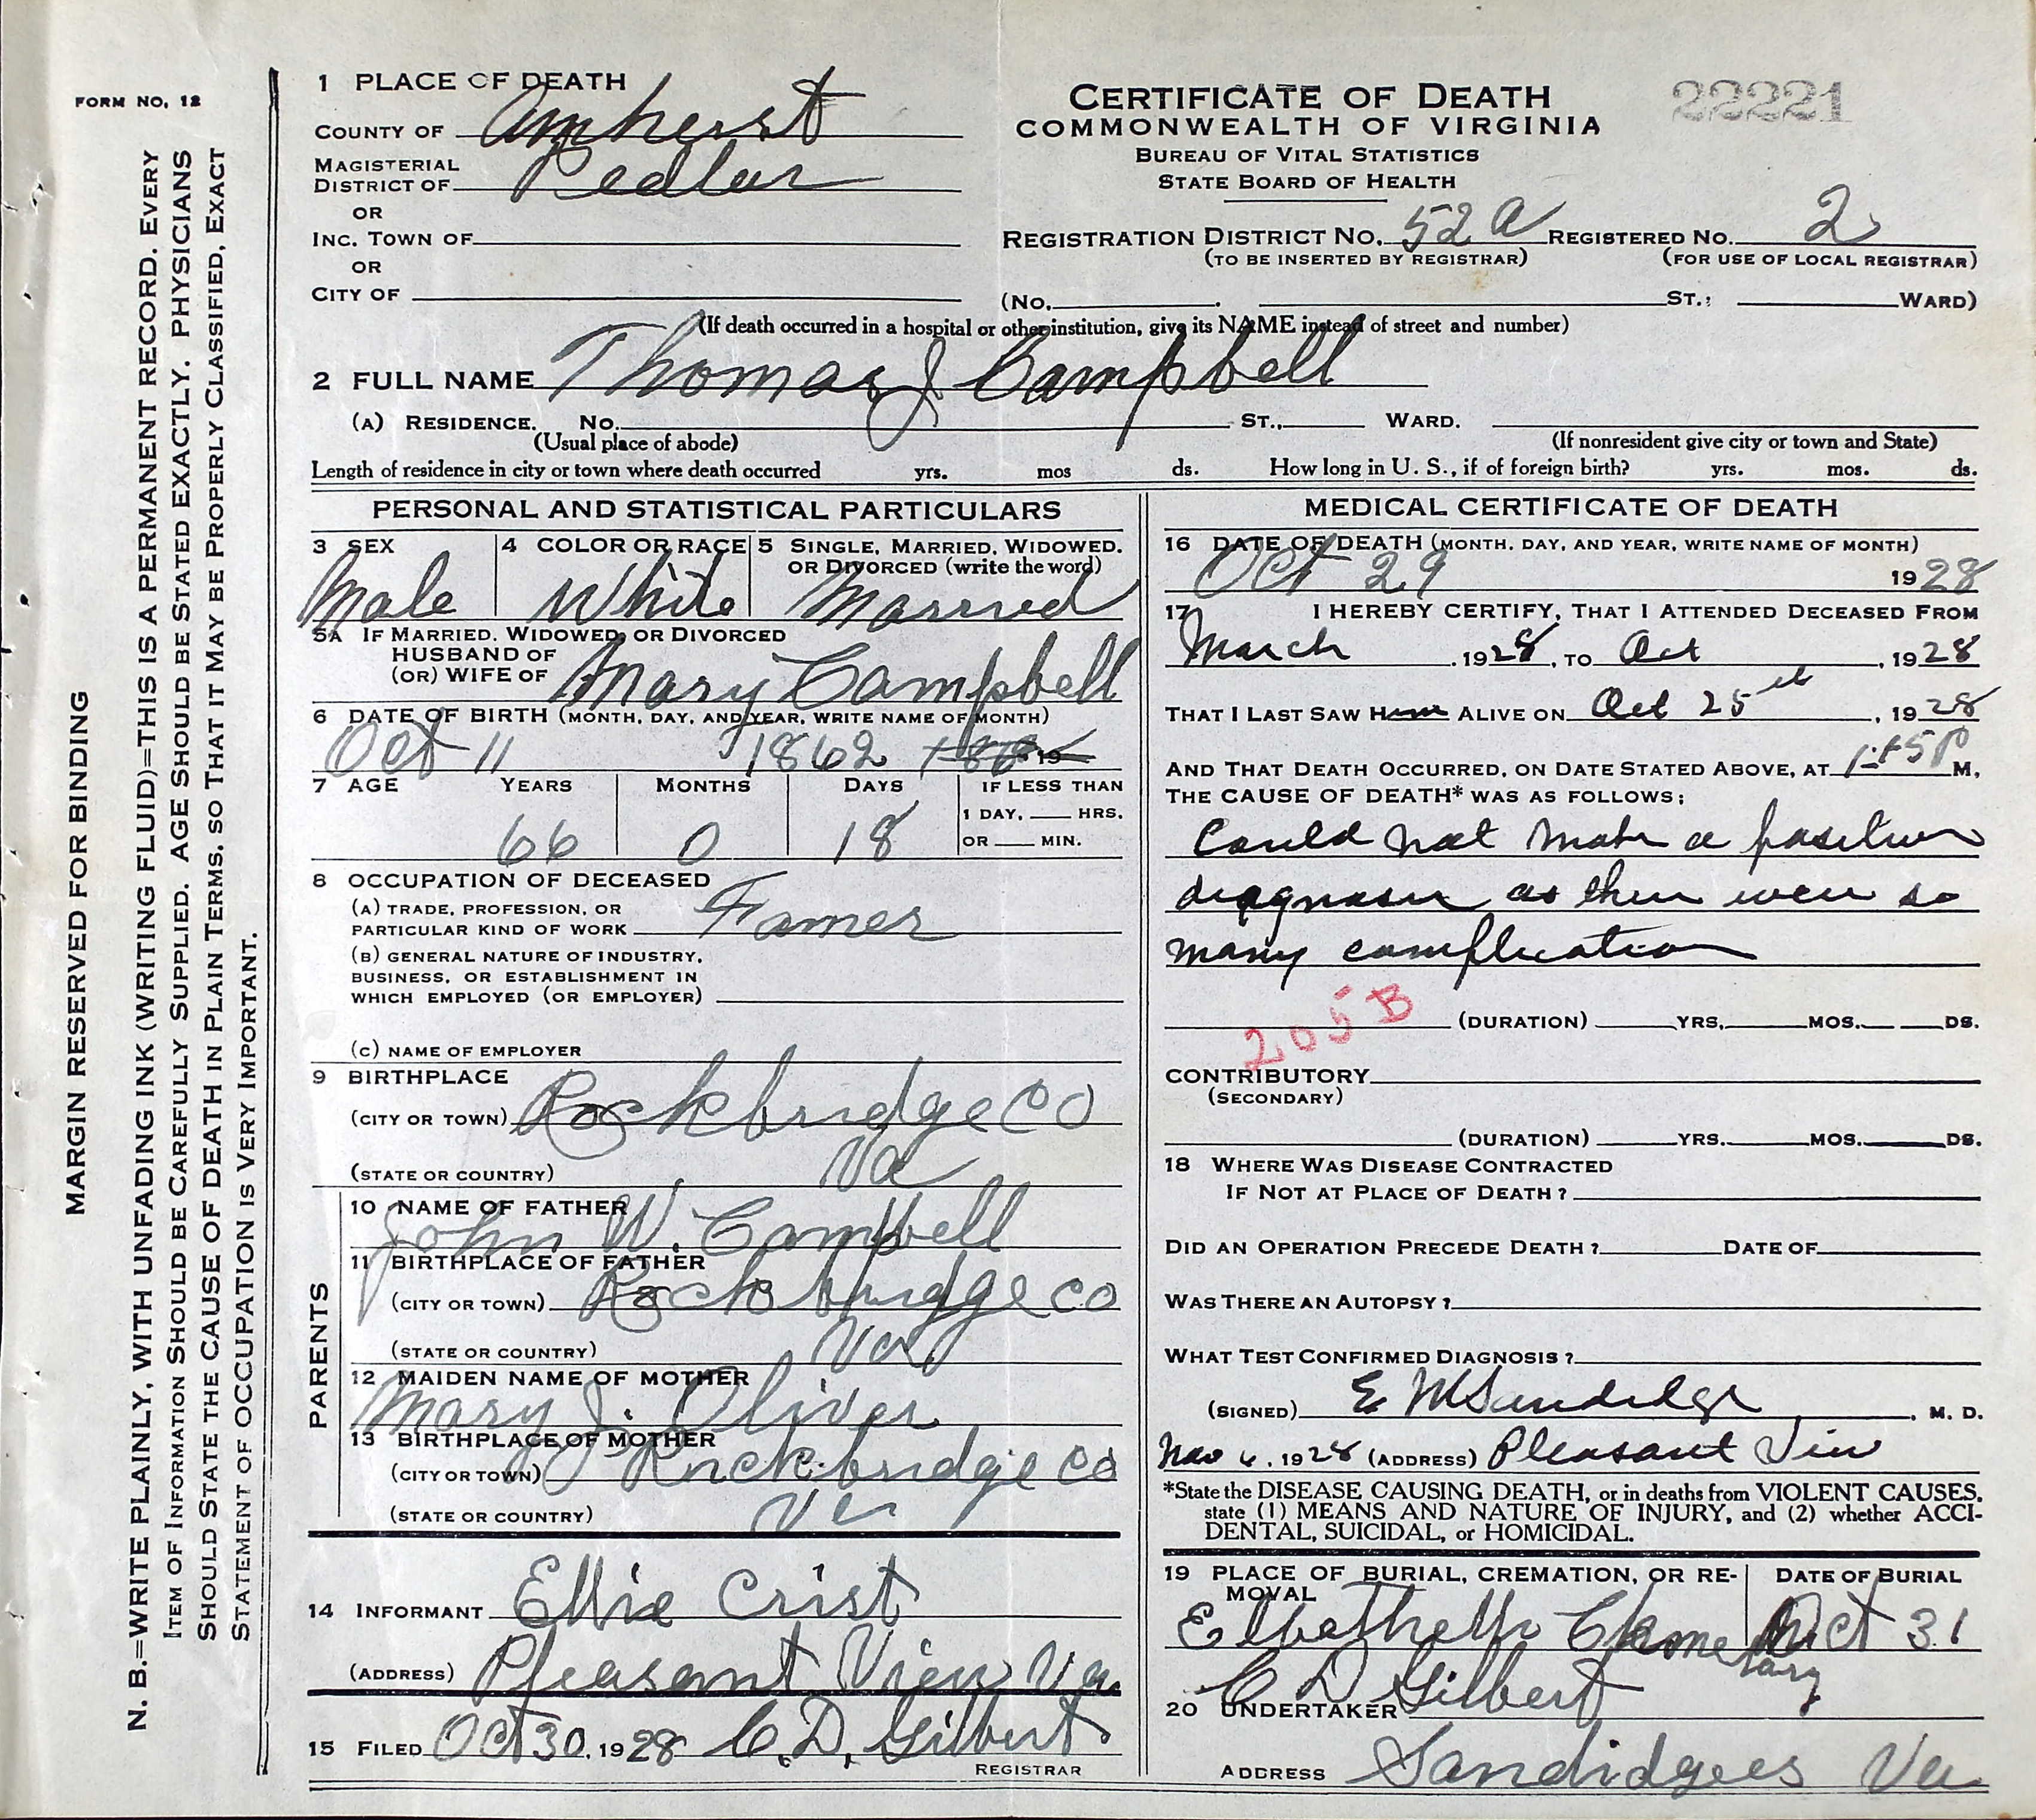 FORM NO. 12
MARGIN RESERVED FOR BINDING
N. B.=WRITE PLAINLY, WITH UNFADING INK (WRITING FLUID)=THIS IS A PERMANENT RECORD. EVERY
ITEM OF INFORMATION SHOULD BE CAREFULLY SUPPLIED. AGE SHOULD BE STATED EXACTLY. PHYSICIANS
SHOULD STATE THE CAUSE OF DEATH IN PLAIN TERMS, SO THAT IT MAY BE PROPERLY CLASSIFIED, EXACT
STATEMENT OF OCCUPATION IS VERY IMPORTANT.
1 PLACE OF DEATH
COUNTY OF Amherst
MAGISTERIAL
DISTRICT OF Pedlar
OR
INC. TOWN OF
OR
CITY OF
CERTIFICATE OF DEATH
COMMONWEALTH OF VIRGINIA
BUREAU OF VITAL STATISTICS
STATE BOARD OF HEALTH
22221
REGISTRATION DISTRICT NO. 52 a REGISTERED NO. 2
(TO BE INSERTED BY REGISTRAR) (FOR USE OF LOCAL REGISTRAR)
(NO. ST.; WARD)
(If death occurred in a hospital or other institution, give its NAME instead of street and number)
2 FULL NAME Thomas J Campbell
(A) RESIDENCE. NO. ST., WARD.
(Usual place of abode) (If nonresident give city or town and State)
Length of residence in city or town where death occurred yrs. mos ds. How long in U. S., if of foreign birth? yrs. mos. ds.
PERSONAL AND STATISTICAL PARTICULARS
3 SEX 4 COLOR OR RACE 5 SINGLE, MARRIED, WIDOWED,
OR DIVORCED (write the word)
Male White Married
5A IF MARRIED, WIDOWED, OR DIVORCED
HUSBAND OF
(OR) WIFE OF Mary Campbell
6 DATE OF BIRTH (MONTH, DAY, AND YEAR, WRITE NAME OF MONTH)
Oct 11 1862 19
7 AGE YEARS MONTHS DAYS IF LESS THAN
1 DAY, HRS.
OR MIN.
66 0 18
8 OCCUPATION OF DECEASED
(A) TRADE, PROFESSION, OR
PARTICULAR KIND OF WORK Famer
(B) GENERAL NATURE OF INDUSTRY,
BUSINESS, OR ESTABLISHMENT IN
WHICH EMPLOYED (OR EMPLOYER)
(C) NAME OF EMPLOYER
9 BIRTHPLACE
(CITY OR TOWN) Rockbridge CO
(STATE OR COUNTRY) Va
PARENTS
10 NAME OF FATHER
John W. Campbell
11 BIRTHPLACE OF FATHER
(CITY OR TOWN) Rockbridge CO
(STATE OR COUNTRY) Va
12 MAIDEN NAME OF MOTHER
Mary J. Oliver
13 BIRTHPLACE OF MOTHER
(CITY OR TOWN) Rockbridge Co
(STATE OR COUNTRY) Va
14 INFORMANT Ellie Crist
(ADDRESS) Pleasant View Va
15 FILED Oct 30, 1928 C. D. Gilbert
REGISTRAR
MEDICAL CERTIFICATE OF DEATH
16 DATE OF DEATH (MONTH, DAY, AND YEAR, WRITE NAME OF MONTH)
Oct 29 1928
17 I HEREBY CERTIFY, THAT I ATTENDED DECEASED FROM
March, 1928, TO Oct, 1928
THAT I LAST SAW Him ALIVE ON Oct 25th, 1928
AND THAT DEATH OCCURRED, ON DATE STATED ABOVE, AT M.
THE CAUSE OF DEATH* WAS AS FOLLOWS:
Could not make a positive
diagnosis as there were so
many complication
205 B
(DURATION) YRS. MOS. DS.
CONTRIBUTORY
(SECONDARY)
(DURATION) YRS. MOS. DS.
18 WHERE WAS DISEASE CONTRACTED
IF NOT AT PLACE OF DEATH?
DID AN OPERATION PRECEDE DEATH? DATE OF
WAS THERE AN AUTOPSY?
WHAT TEST CONFIRMED DIAGNOSIS?
(SIGNED) E M Sandidge, M. D.
Nov 6, 1928 (ADDRESS) Pleasant View
*State the DISEASE CAUSING DEATH, or in deaths from VIOLENT CAUSES,
state (1) MEANS AND NATURE OF INJURY, and (2) whether ACCI-
DENTAL, SUICIDAL, or HOMICIDAL.
19 PLACE OF BURIAL, CREMATION, OR RE- DATE OF BURIAL
MOVAL
Oct 31
C D Gilbert
20 UNDERTAKER
ADDRESS Sandidges Va